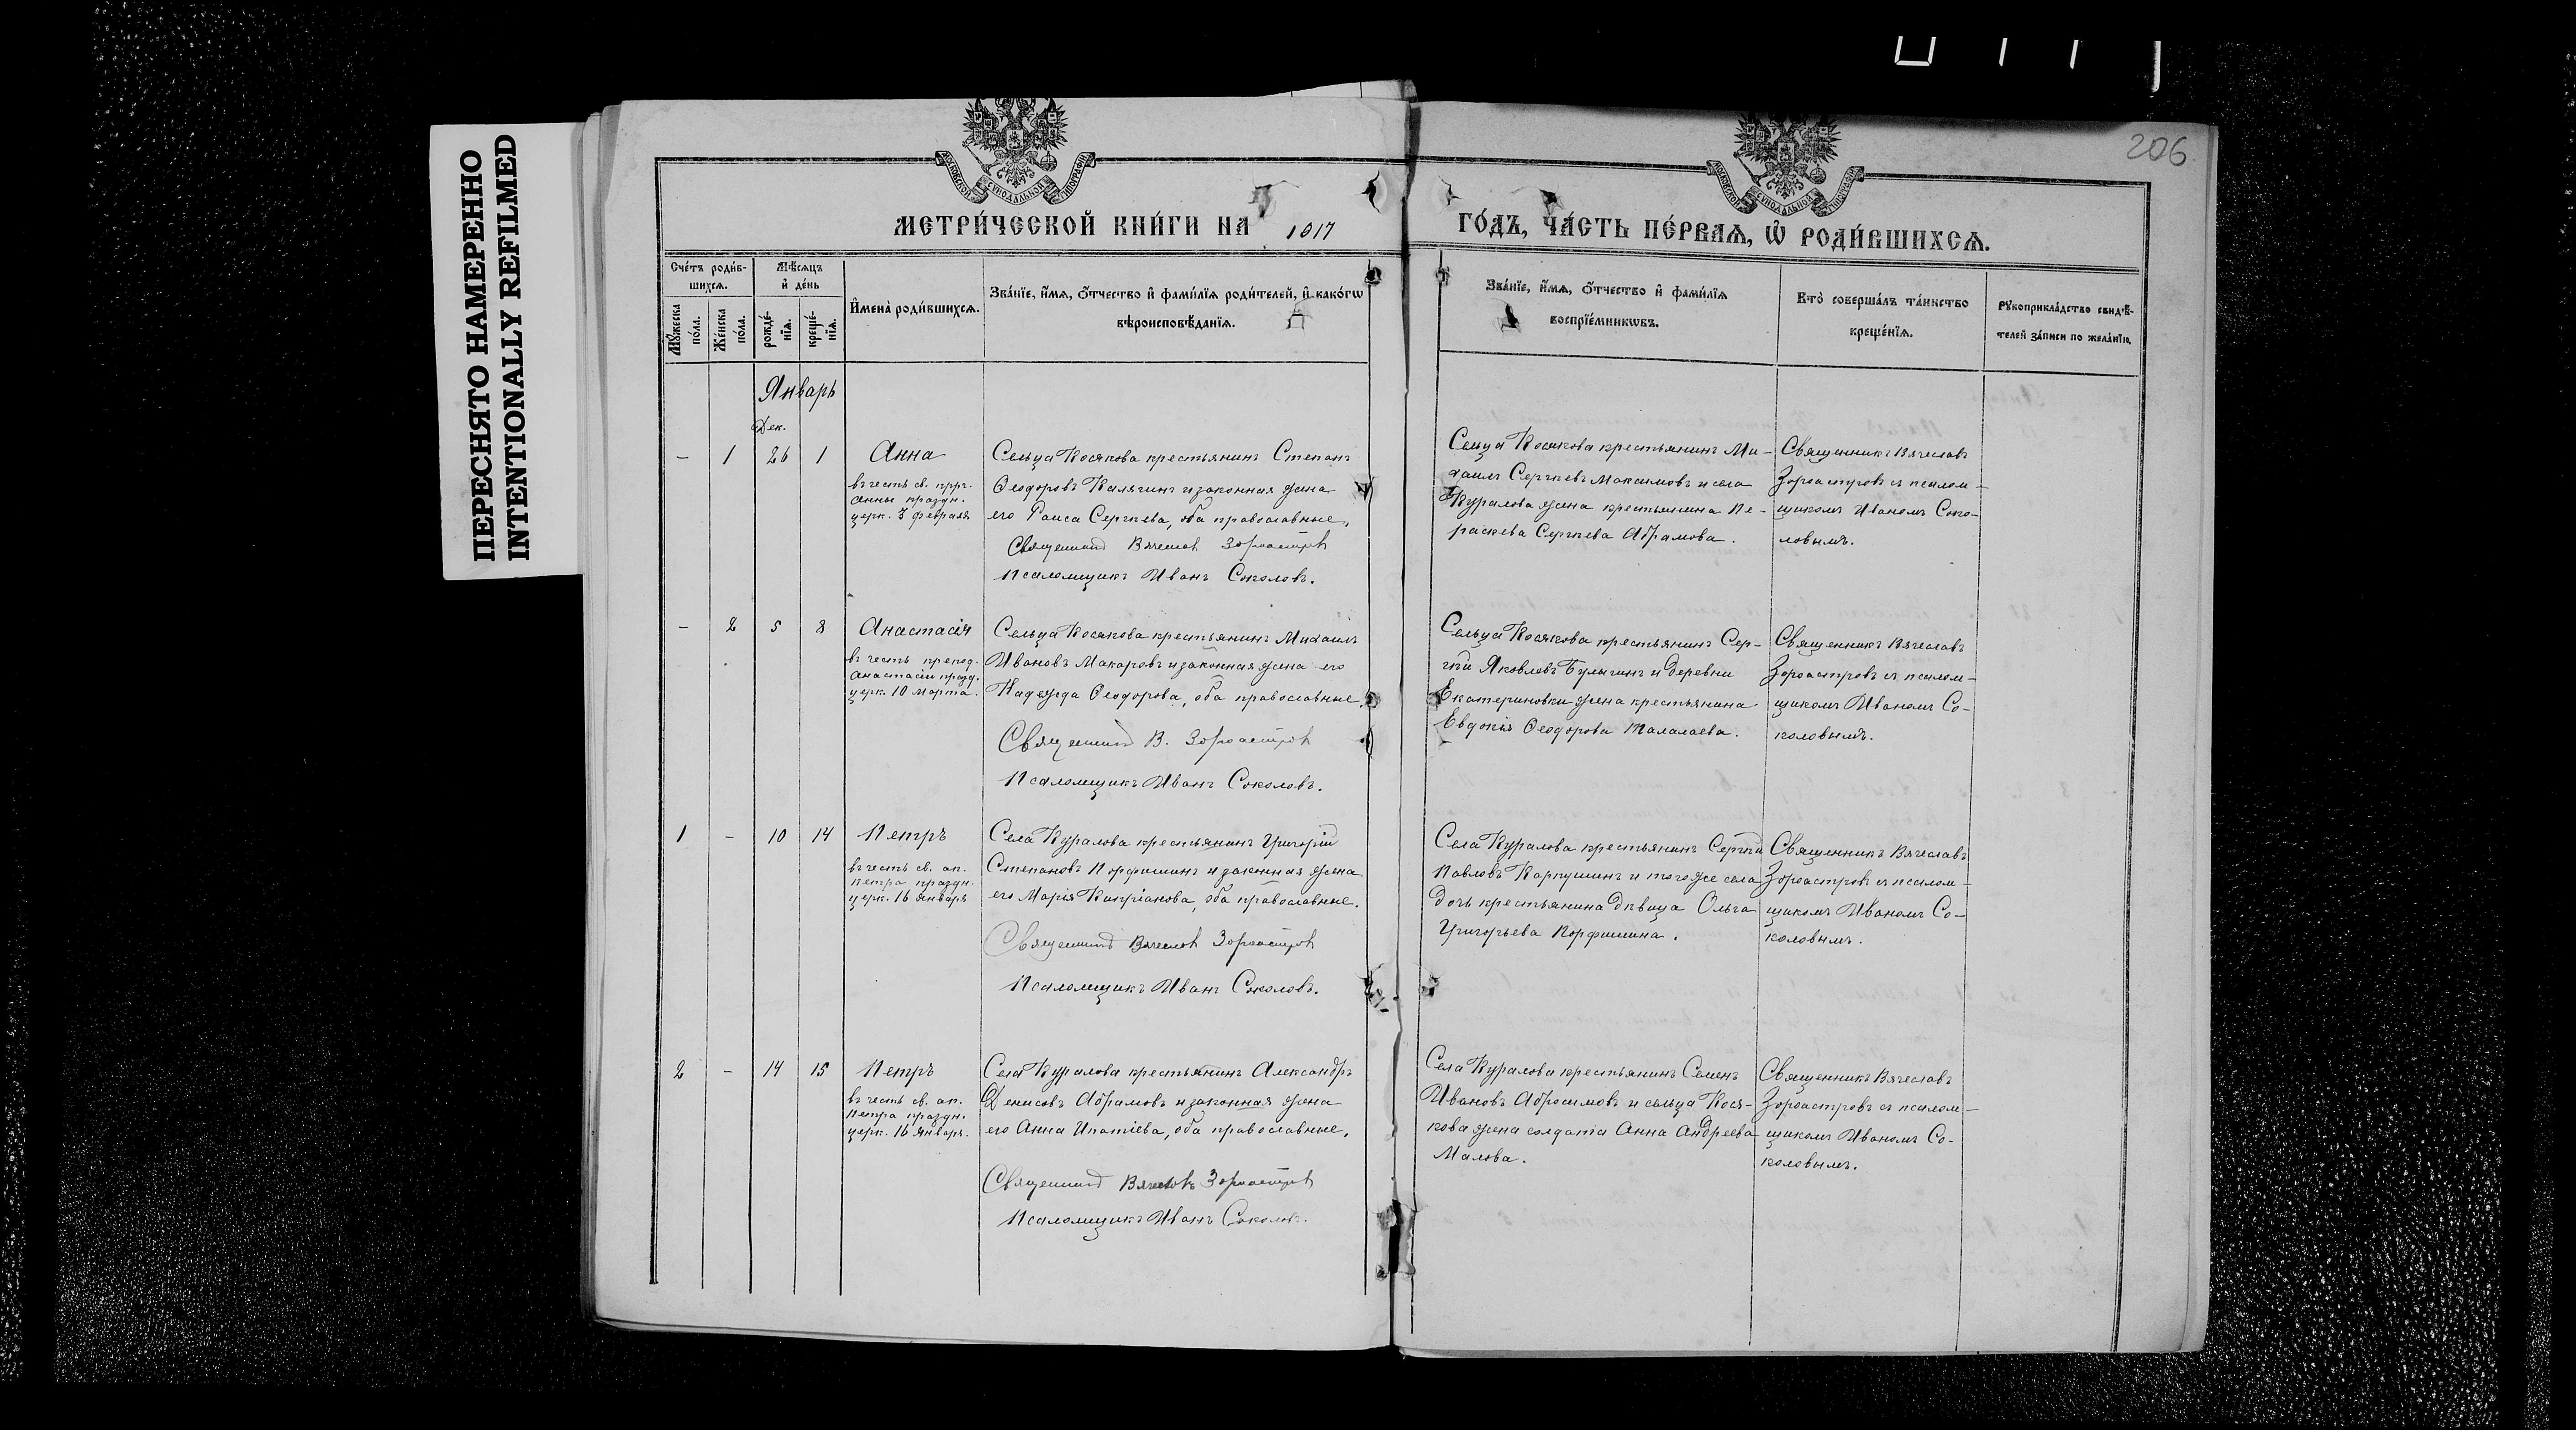 ПЕРЕСНЯТО НАМЕРЕННО
INTENTIONALLY REFILMED
206
МЕТРИ́ЧЕСКОЙ КНИ́ГИ НА 1917 ГО́ДЪ, ЧА́СТЬ ПЕ́РВАЯ, Ѽ РОДИ́ВШИХСЯ.
Сче́тъ роди́в-
шихся.
Мѣ́сяцъ
и҆ де́нь
Мꙋ́жеска
по́ла.
Же́нска
по́ла.
рожде́-
нїя.
креще́-
нїя.
И҆мена̀ роди́вшихся.
Зва́нїе, и҆́мя, ѻ҆́тчество и҆ фами́лїя роди́телей, и҆ како́гѡ
вѣроисповѣ́данїя.
Зва́нїе, и҆́мя, ѻ҆́тчество и҆ фами́лїя
воспрїе́мникѡвъ.
Кто̀ соверша́лъ та́инство
креще́нїя.
Рꙋкоприкла́дство свидѣ́-
телей за́писи по жела́нїю.
Январь
Дек.
— 1 26 1 Анна
въ честь св. прр.
Анны праздн.
церк. 3 февраля
Сельца Косякова крестьянинъ Степанъ
Ѳеодоровъ Калягинъ и законная жена
его Раиса Сергѣева, оба православные.
Священникъ Вячеслав Зороастров
Псаломщикъ Иванъ Соколовъ.
Сельца Косякова крестьянинъ Ми-
хаилъ Сергѣевъ Максимовъ и села
Куралова жена крестьянина Пе-
раскева Сергѣева Абрамова.
Священникъ Вячеславъ
Зороастровъ съ псалом-
щикомъ Иваномъ Соко-
ловымъ.
— 2 5 8 Анастасія
въ честь препод.
Анастасіи празд.
церк. 10 марта.
Сельца Косякова крестьянинъ Михаилъ
Ивановъ Макаровъ и законная жена его
Надежда Ѳеодорова, оба православные.
Священникъ В. Зороастров
Псаломщикъ Иванъ Соколовъ.
Сельца Косякова крестьянинъ Сер-
гѣй Яковлевъ Булыгинъ и деревни
Екатериновки жена крестьянина
Евдокія Ѳеодорова Талалаева.
Священникъ Вячеславъ
Зороастровъ съ псалом-
щикомъ Иваномъ Со-
коловымъ.
1 — 10 14 Петръ
въ честь св. ап.
Петра праздн.
церк. 16 января
Села Куралова крестьянинъ Григорій
Степановъ Порфишинъ и законная жена
его Марія Кипріанова, оба православные.
Священникъ Вячеслав Зороастров
Псаломщикъ Иванъ Соколовъ.
Села Куралова крестьянинъ Сергѣй
Павловъ Карпушинъ и того же села
дочь крестьянина дѣвица Ольга
Григорьева Порфишина.
Священникъ Вячеславъ
Зороастровъ съ псалом-
щикомъ Иваномъ Со-
коловымъ.
2 — 14 15 Петръ
въ честь св. ап.
Петра праздн.
церк. 16 январь.
Села Куралова крестьянинъ Александръ
Денисовъ Абрамовъ и законная жена
его Анна Ипатіева, оба православные.
Священникъ Вячеслав Зороастров
Псаломщикъ Иванъ Соколовъ.
Села Куралова крестьянинъ Семенъ
Ивановъ Абросимовъ и сельца Кося-
кова жена солдата Анна Андреева
Малова.
Священникъ Вячеславъ
Зороастровъ съ псалом-
щикомъ Иваномъ Со-
коловымъ.